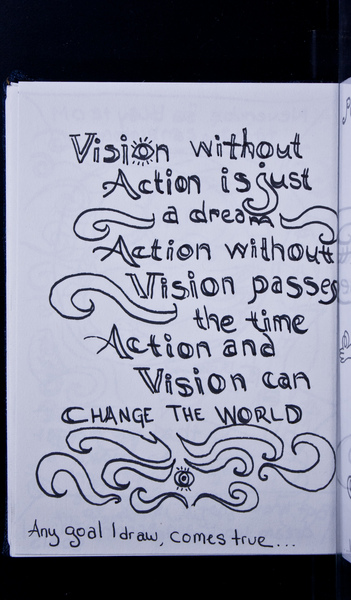 Vision without
Action is just
a dream
Action without
Vision passes
the time
Action and
Vision can
CHANGE THE WORLD
Any goal I draw, comes true...